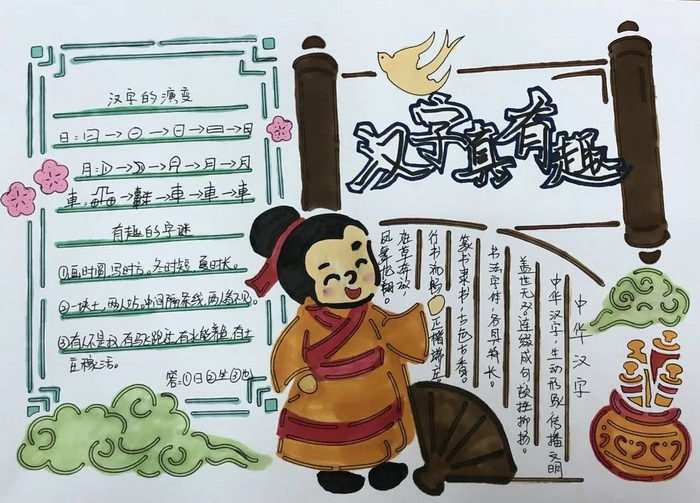 汉字真有趣
汉字的演变
日:→→日→→日
月:→→→月→月
車:→→車→車→車
有趣的字谜
①画时圆,写时方,冬时短,夏时长。
②一块土,两人坐,中间隔条线,两人看不见。
③有人不是我,有马能跑过,有水能养鱼,有土
庄稼活。
答:①日②坐③也
中华汉字
中华汉字,生动形象,传播文明
盖世无双,连缀成句,
书法字体,各具特长。
篆书隶书,古色古香。
行书流畅,正楷端庄
狂草奔放,
凤舞龙翔。